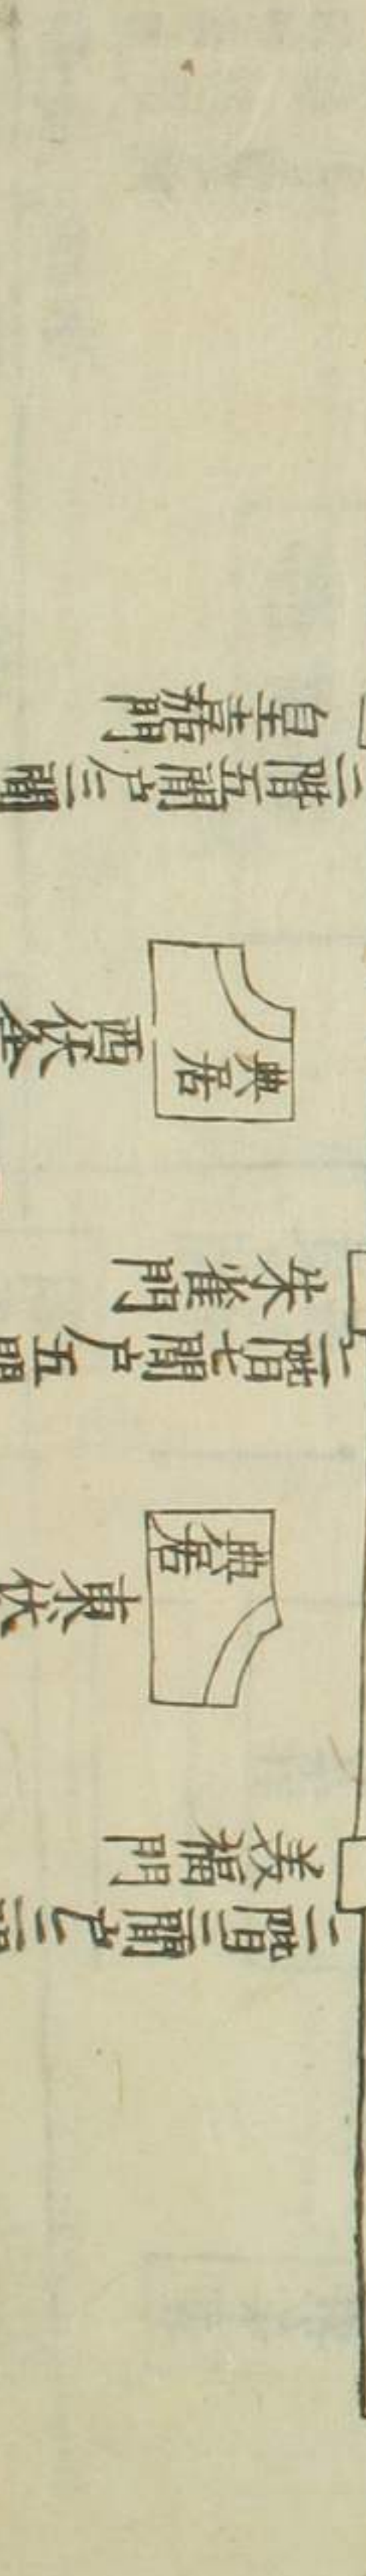 皇嘉門
二階五間戸三間
典居
西伏舎
朱雀門
二階七間戸五間
典居
東伏
美福門
二階三間戸三間